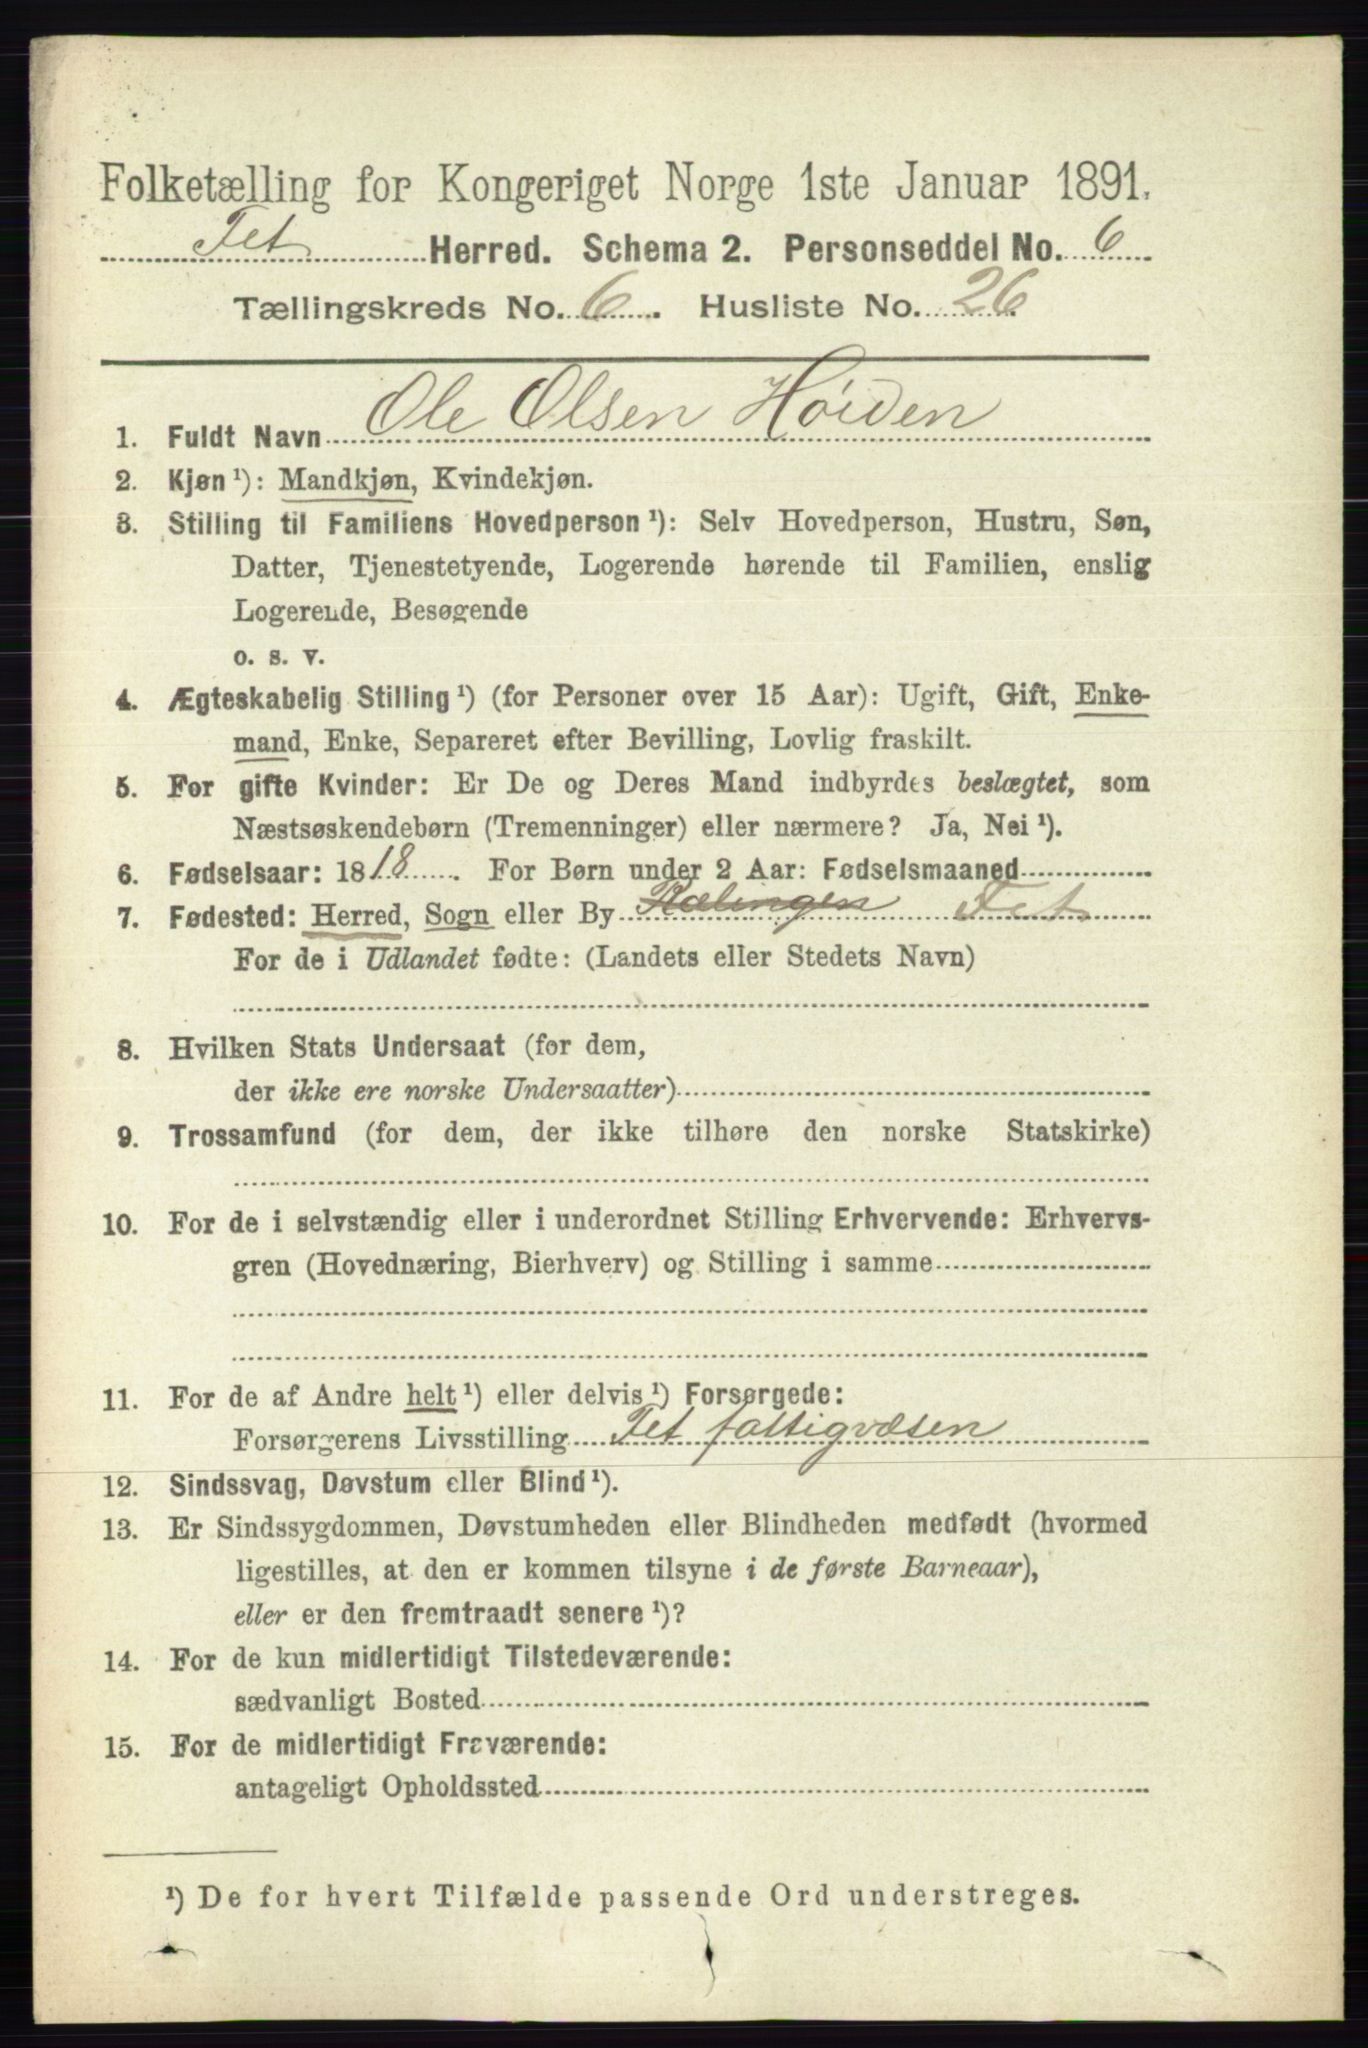 Folketælling for Kongeriget Norge 1ste Januar 1891.
Fet Herred. Schema 2. Personseddel No. 6
Tællingskreds No. 6. Husliste No. 26
1. Fuldt Navn Ole Olsen Høiden
2. Kjøn ¹): Mandkjøn, Kvindekjøn.
3. Stilling til Familiens Hovedperson ¹): Selv Hovedperson, Hustru, Søn,
Datter, Tjenestetyende, Logerende hørende til Familien, enslig
Logerende, Besøgende
o. s. v.
4. Ægteskabelig Stilling ¹) (for Personer over 15 Aar): Ugift, Gift, Enke-
mand, Enke, Separeret efter Bevilling, Lovlig fraskilt.
5. For gifte Kvinder: Er De og Deres Mand indbyrdes beslægtet, som
Næstsøskendebørn (Tremenninger) eller nærmere? Ja, Nei ¹).
6. Fødselsaar: 1818. For Børn under 2 Aar: Fødselsmaaned
7. Fødested: Herred, Sogn eller By Rælingen Fet
For de i Udlandet fødte: (Landets eller Stedets Navn)
8. Hvilken Stats Undersaat (for dem,
der ikke ere norske Undersaatter)
9. Trossamfund (for dem, der ikke tilhøre den norske Statskirke)
10. For de i selvstændig eller i underordnet Stilling Erhvervende: Erhvervs-
gren (Hovednæring, Bierhverv) og Stilling i samme
11. For de af Andre helt ¹) eller delvis ¹) Forsørgede:
Forsørgerens Livsstilling Fet fattigvæsen
12. Sindssvag, Døvstum eller Blind ¹).
13. Er Sindssygdommen, Døvstumheden eller Blindheden medfødt (hvormed
ligestilles, at den er kommen tilsyne i de første Barneaar),
eller er den fremtraadt senere ¹)?
14. For de kun midlertidigt Tilstedeværende:
sædvanligt Bosted
15. For de midlertidigt Fraværende:
antageligt Opholdssted
¹) De for hvert Tilfælde passende Ord understreges.